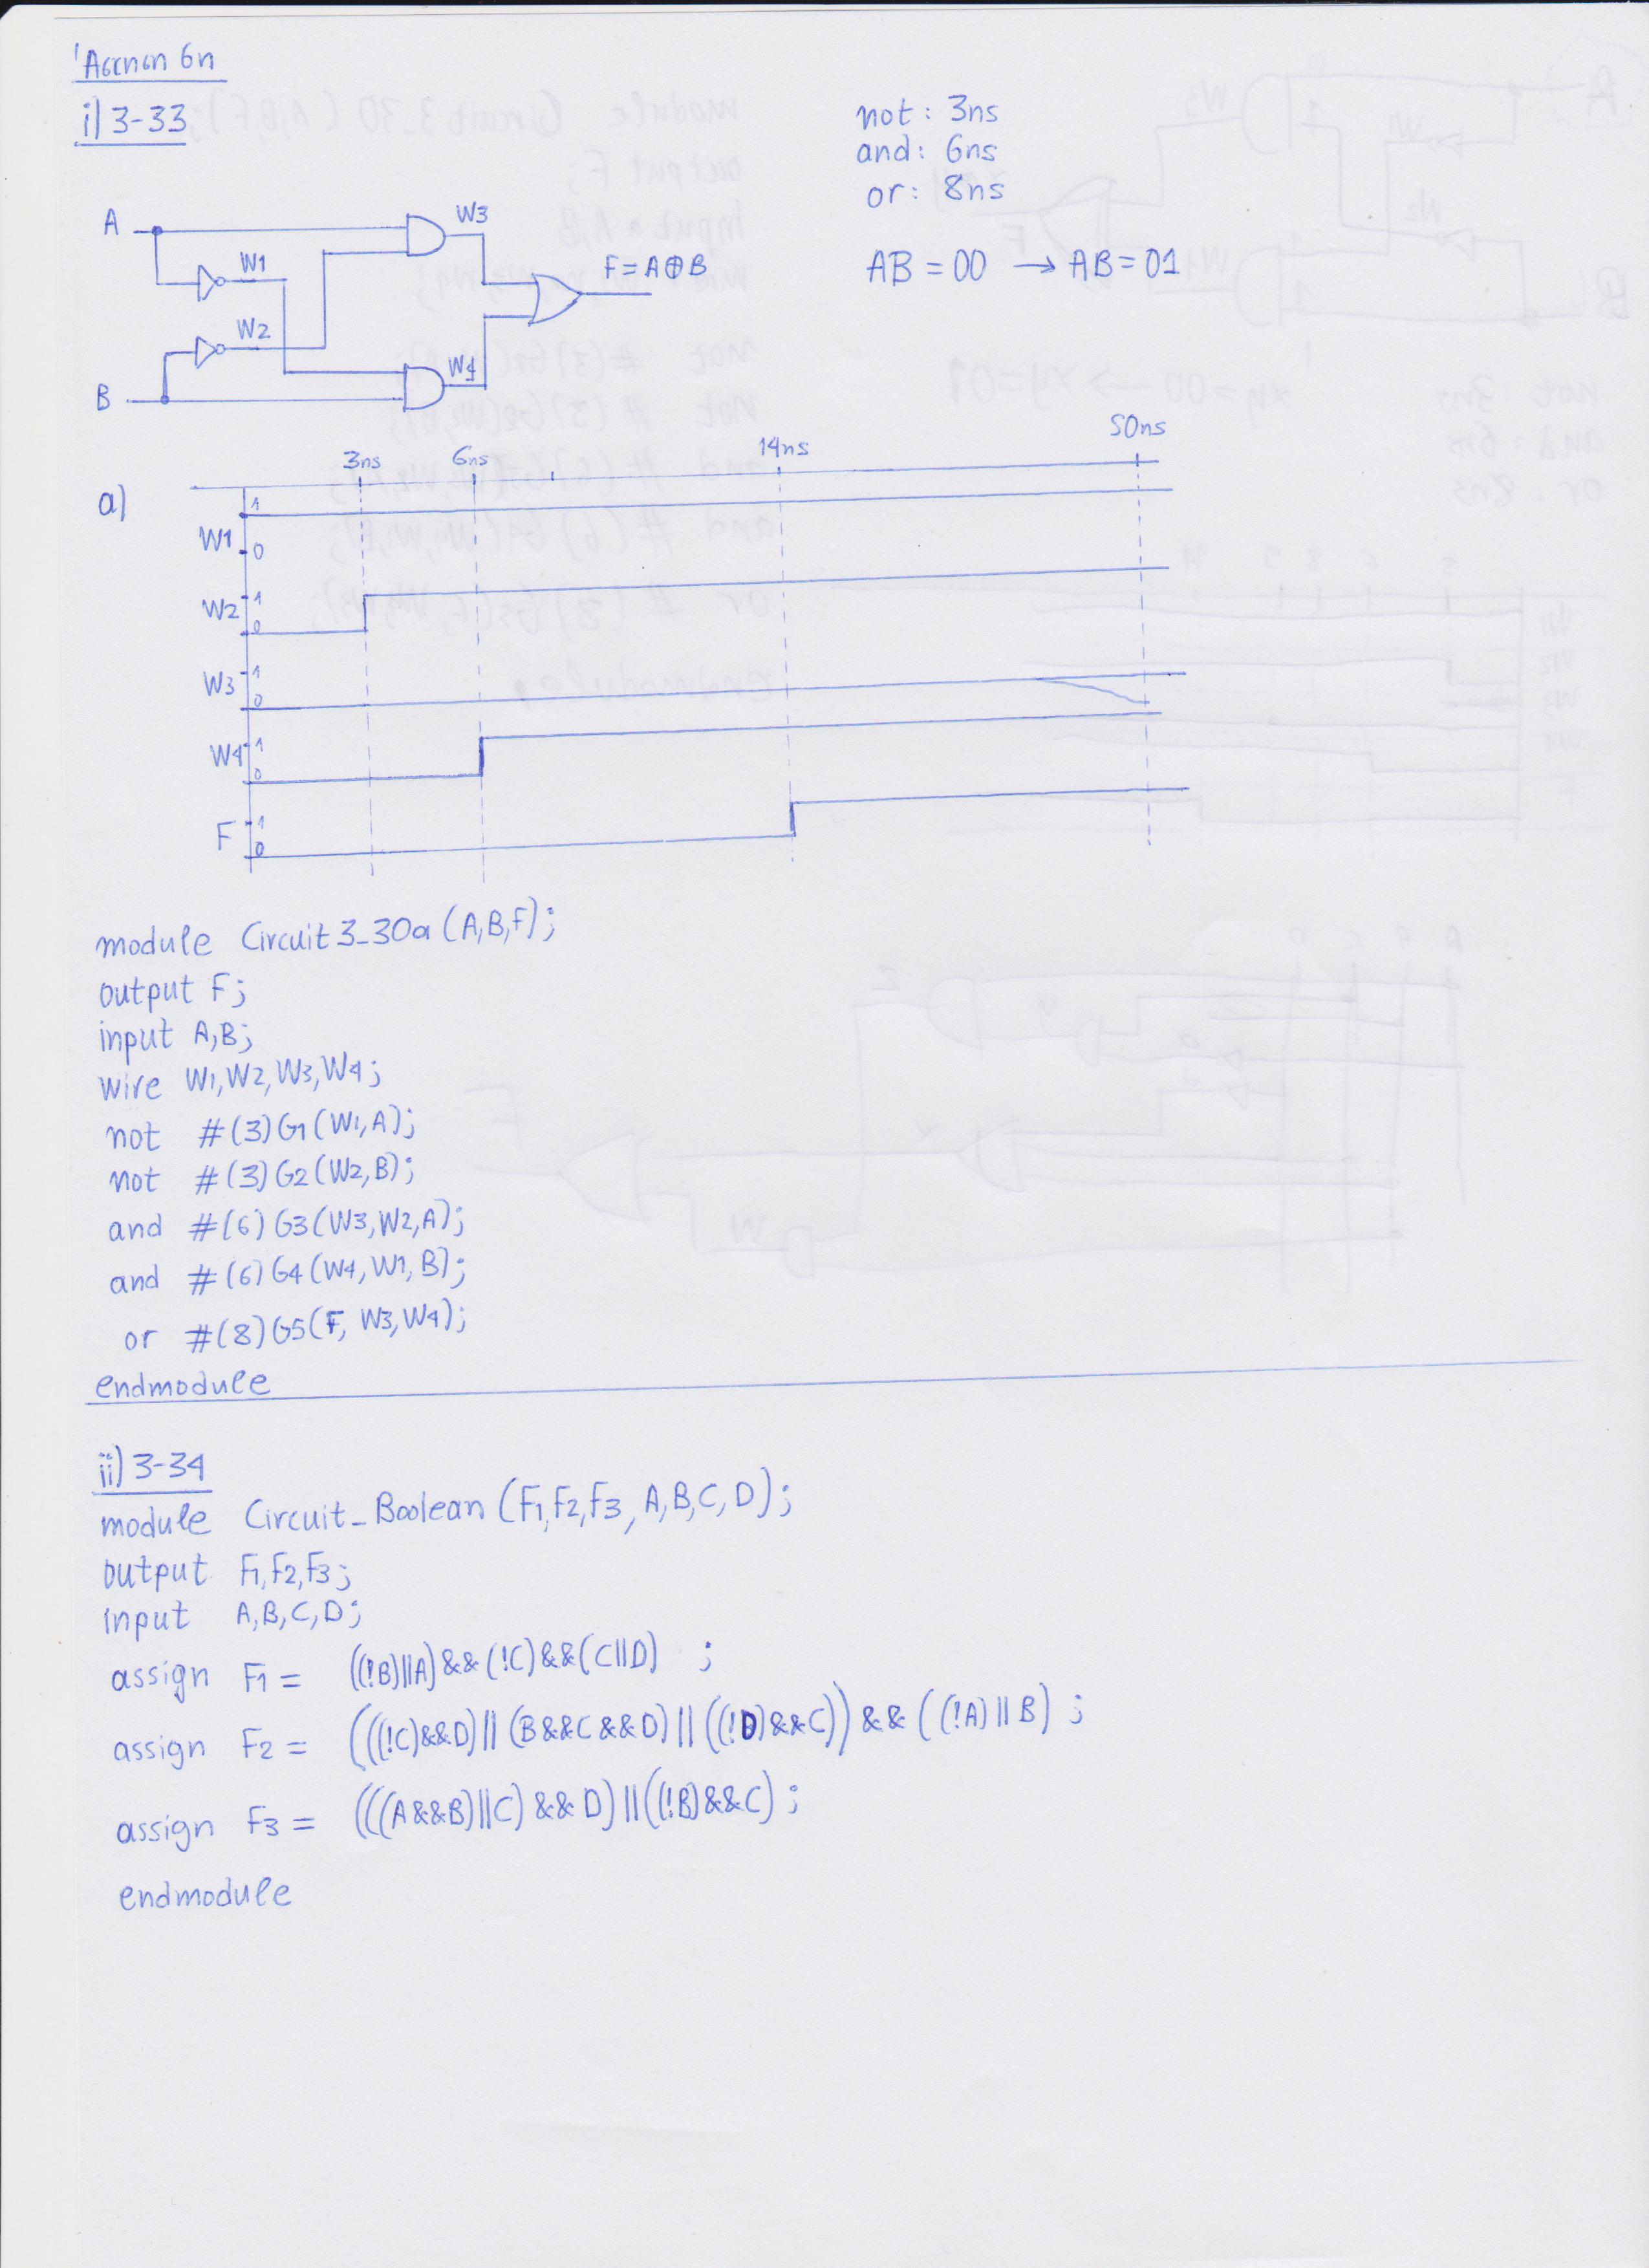 Άσκηση 6η
i) 3-33
not: 3ns
and: 6ns
or: 8ns
AB = 00 → AB = 01
A
W1
W2
B
W3
W4
F = A⊕B
3ns 6ns 14ns 50ns
a)
W1 1 0
W2 1 0
W3 1 0
W4 1 0
F 1 0
module Circuit 3_30a (A,B,F);
output F;
input A,B;
wire W1,W2,W3,W4;
not #(3)G1(W1,A);
not #(3)G2(W2,B);
and #(6)G3(W3,W2,A);
and #(6)G4(W4,W1,B);
or #(8)G5(F, W3,W4);
endmodule
ii) 3-34
module Circuit_Boolean (F1,F2,F3, A,B,C,D);
output F1,F2,F3;
input A,B,C,D;
assign F1 = ((!B)||A)&&(!C)&&(C||D) ;
assign F2 = (((!C)&&D)||(B&&C&&D)||((!D)&&C))&&((!A)||B) ;
assign F3 = (((A&&B)||C)&&D)||((!B)&&C) ;
endmodule